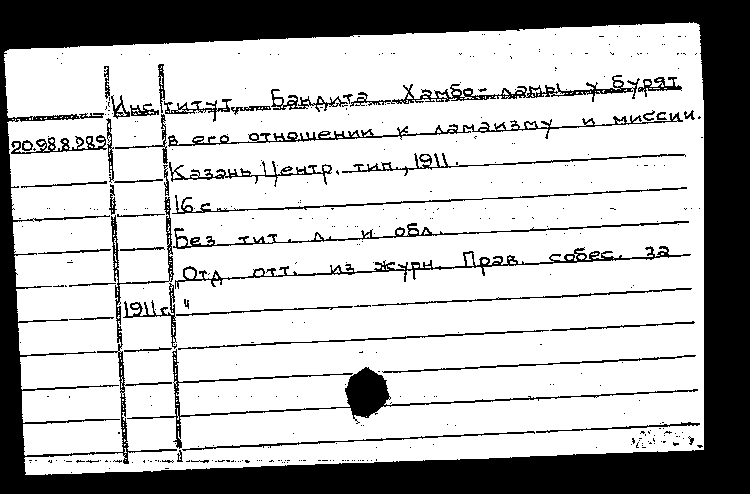 Институт, Бандита Хамбо-ламы у бурят
20.98.8.989 в его отношении к ламаизму и миссии.
Казань, Центр. тип., 1911.
16 с.
Без тит. л. и обл.
"Отд. отт. из журн. Прав. собес. за
1911 г. "